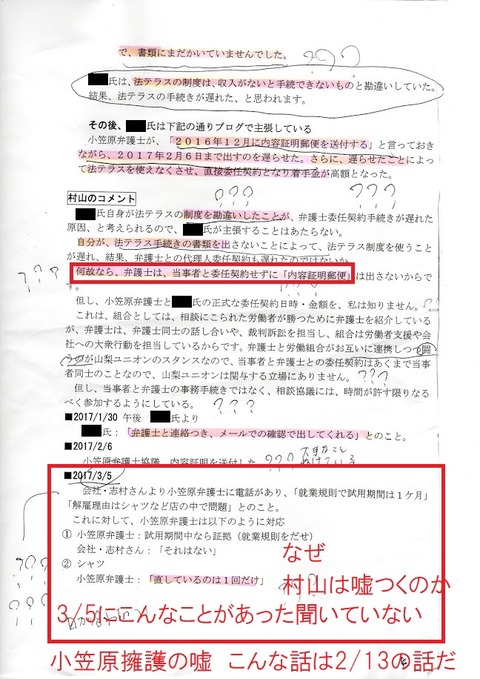 で、書類にまだかいていませんでした。 ???
氏は、法テラスの制度は、収入がないと手続できないものと勘違いしていた。
結果、法テラスの手続きが遅れた、と思われます。
その後、 氏は下記の通りブログで主張している
小笠原弁護士が、「２０１６年１２月に内容証明郵便を送付する」と言っておき
ながら、２０１７年２月６日まで出すのを遅らせた。さらに、遅らせたことによっ
て法テラスを使えなくさせ、直接委任契約となり着手金が高額となった。
村山のコメント ??? ???
氏自身が法テラスの制度を勘違いしたことが、弁護士委任契約手続きが遅れた
原因、と考えられるので、 氏が主張することはあたらない。
自分が、法テラス手続きの書類を出さないことによって、法テラスの制度を使うこと
が遅れ、結果、弁護士との代理人委任契約も遅れたのではないか。
???
何故なら、弁護士は、当事者と委任契約せずに「内容証明郵便」は出さないからで
す。
但し、小笠原弁護士と 氏の正式な委任契約日時・金額を、私は知りません。 ???
これは、組合としては、相談にこられた労働者が勝つために弁護士を紹介している
が、弁護士は、弁護士同士の話し合いや、裁判訴訟を担当し、組合は労働者支援や会
社への大衆行動を担当しているからです。弁護士と労働組合がお互いに連携しつつ闘
うのが山梨ユニオンのスタンスなので、当事者と弁護士との委任契約はあくまで当事
者同士のことなので、山梨ユニオンは関与する立場にありません。 ???
但し、当事者と弁護士の事務手続きではなく、相談協議には、時間が許す限りなる
べく参加するようにしている。 ???
■2017/1/30 午後 氏より
氏：「弁護士と連絡つき、メールでの確認で出してくれる」とのこと。
■2017/2/6
小笠原弁護士協議 内容証明を送付した ???
■2017/3/5
会社・志村さんより小笠原弁護士に電話があり、「就業規則で試用期間は１ケ月」
「解雇理由はシャツなど店の中で問題」とのこと。
これに対して、小笠原弁護士は以下のように対応
① 小笠原弁護士：試用期間中なら証拠（就業規則をだせ）
会社・志村さん：「それはない」
② シャツ
小笠原弁護士：「直しているのは１回だけ」
???
???
なぜ
村山は嘘つくのか
3/5にこんなことがあった聞いていない
小笠原擁護の嘘 こんな話は2/13の話だ